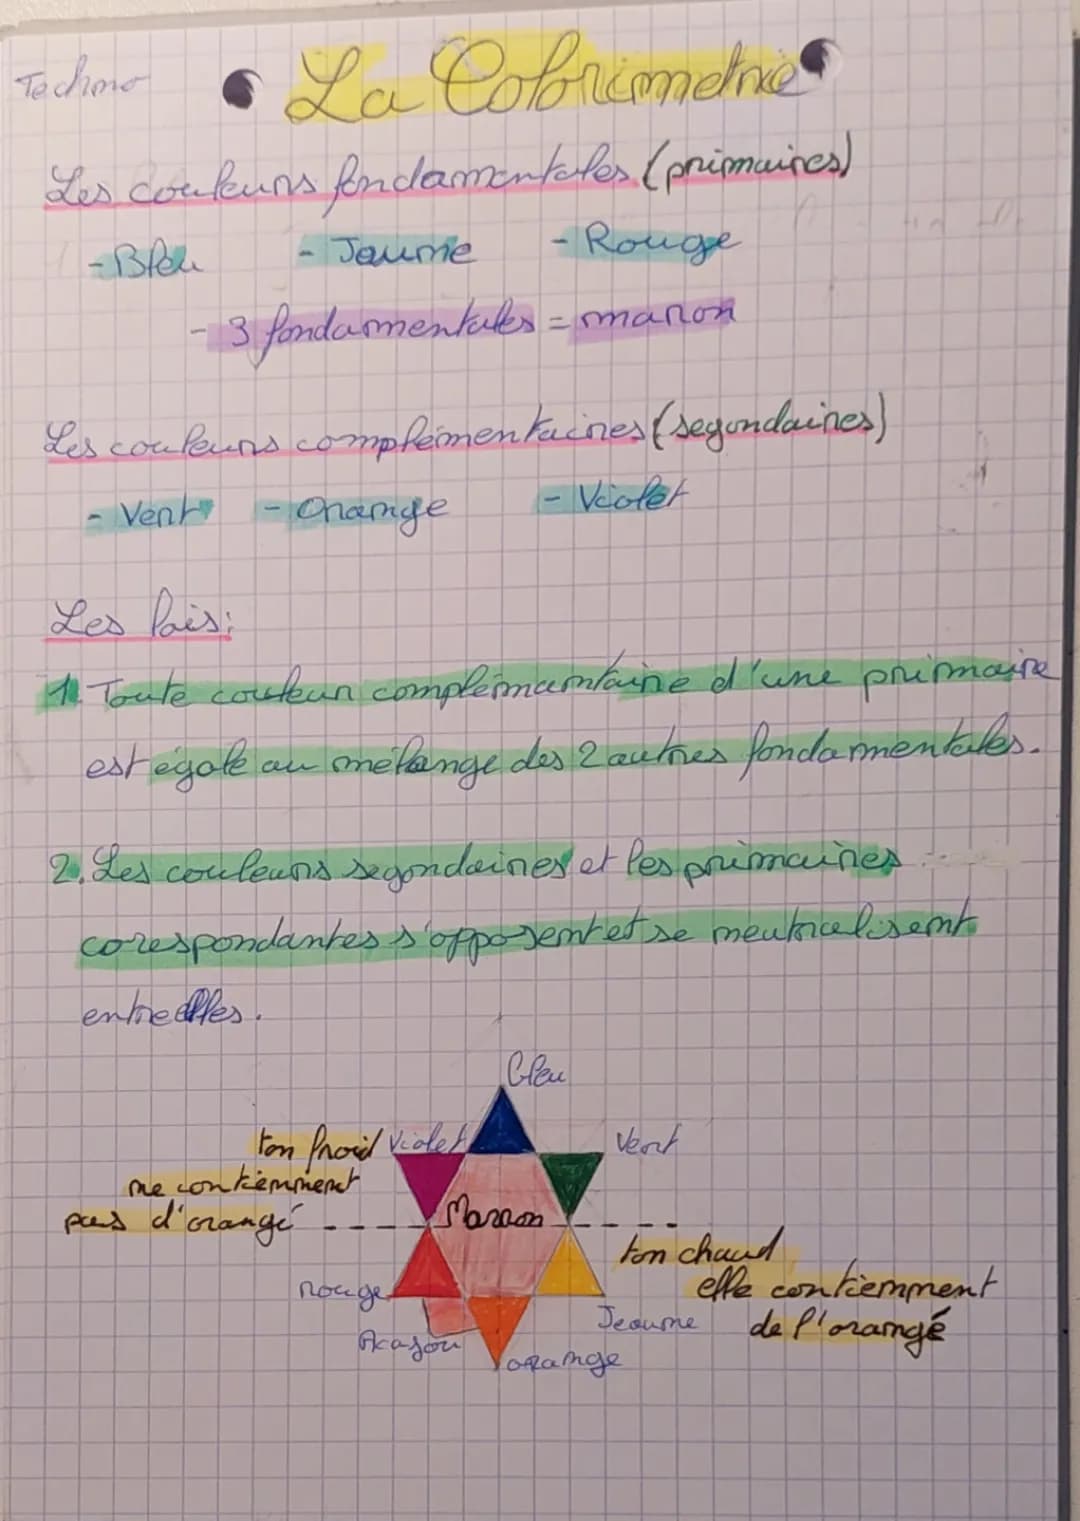 Techno
La Colorimetrie
Les couleurs fondamentales (primaires)
- Bleu - Jaune - Rouge
- 3 fondamentales = maron
Les couleurs complémentaires (segondaires)
- Vert - Orange - Violet
Les lois:
1. Toute couleur complémamtaire d'une primaire
est égale au mélange des 2 autres fondamentales.
2. Les couleurs segondaires et les primaires
corespondantes s'opposent et se neutralisent
entre elles.
bleu
ton froid Violet Vert
ne contiennent
pas d'orangé Marron
ton chaud
rouge elle contiennent
Jeaune de l'orangé
Acajou
orange